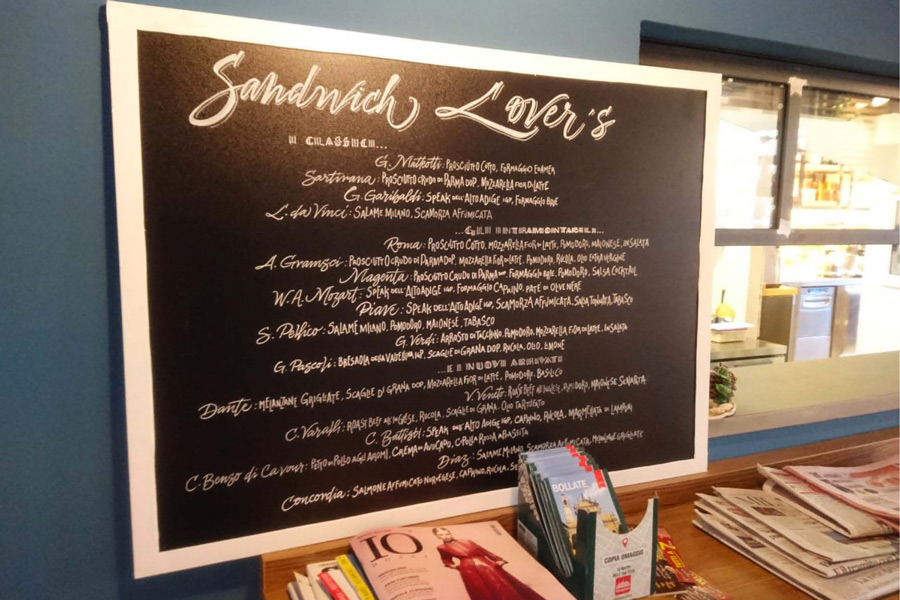 Sandwich Lover's
I CLASSICI...
G. Matteotti: PROSCIUTTO COTTO, FORMAGGIO EDAMER
Santarosa: PROSCIUTTO CRUDO DI PARMA DOP, MOZZARELLA FIOR DI LATTE
G. Garibaldi: SPEAK DELL'ALTO ADIGE IGP, FORMAGGIO BRIE
L. da Vinci: SALAME MILANO, SCAMORZA AFFUMICATA
...GLI INTRAMONTABILI...
Roma: PROSCIUTTO COTTO, MOZZARELLA FIOR DI LATTE, POMODORO, MAIONESE, INSALATA
A. Gramsci: PROSCIUTTO CRUDO DI PARMA DOP, MOZZARELLA FIOR DI LATTE, POMODORO, RUCOLA, OLIO EXTRAVERGINE
Magenta: PROSCIUTTO CRUDO DI PARMA DOP, FORMAGGIO BRIE, POMODORO, SALSA COCKTAIL
W.A. Mozart: SPEAK DELL'ALTO ADIGE IGP, FORMAGGIO CAPRINO, PATÈ DI OLIVE NERE
Piave: SPEAK DELL'ALTO ADIGE IGP, SCAMORZA AFFUMICATA, SALSA TONNATA, TABASCO
S. Pellico: SALAME MILANO, POMODORO, MAIONESE, TABASCO
G. Verdi: ARROSTO DI TACCHINO, POMODORO, MOZZARELLA FIOR DI LATTE, INSALATA
G. Pascoli: BRESAOLA DELLA VALTELLINA IGP, SCAGLIE DI GRANA DOP, RUCOLA, OLIO, LIMONE
...E I NUOVI ARRIVATI
Dante: MELANZANE GRIGLIATE, SCAGLIE DI GRANA DOP, MOZZARELLA FIOR DI LATTE, POMODORO, BASILICO
V. Veneto: ROAST BEEF ALL'INGLESE, POMODORO, MAIONESE SENAPATA
C. Varalli: ROAST BEEF ALL'INGLESE, RUCOLA, SCAGLIE DI GRANA, OLIO TARTUFATO
C. Battisti: SPEAK DELL'ALTO ADIGE IGP, CAPRINO, RUCOLA, MARMELLATA DI LAMPONI
C. Benso di Cavour: PETTO DI POLLO AGLI AROMI, CREMA DI AVOCADO, CIPOLLA ROSSA ARROSTITA
Diaz: SALAME MILANO, SCAMORZA AFFUMICATA, MELANZANE GRIGLIATE
Concordia: SALMONE AFFUMICATO NORVEGESE, CAPRINO, RUCOLA,
BOLLATE
COPIA OMAGGIO
IO
DONNA